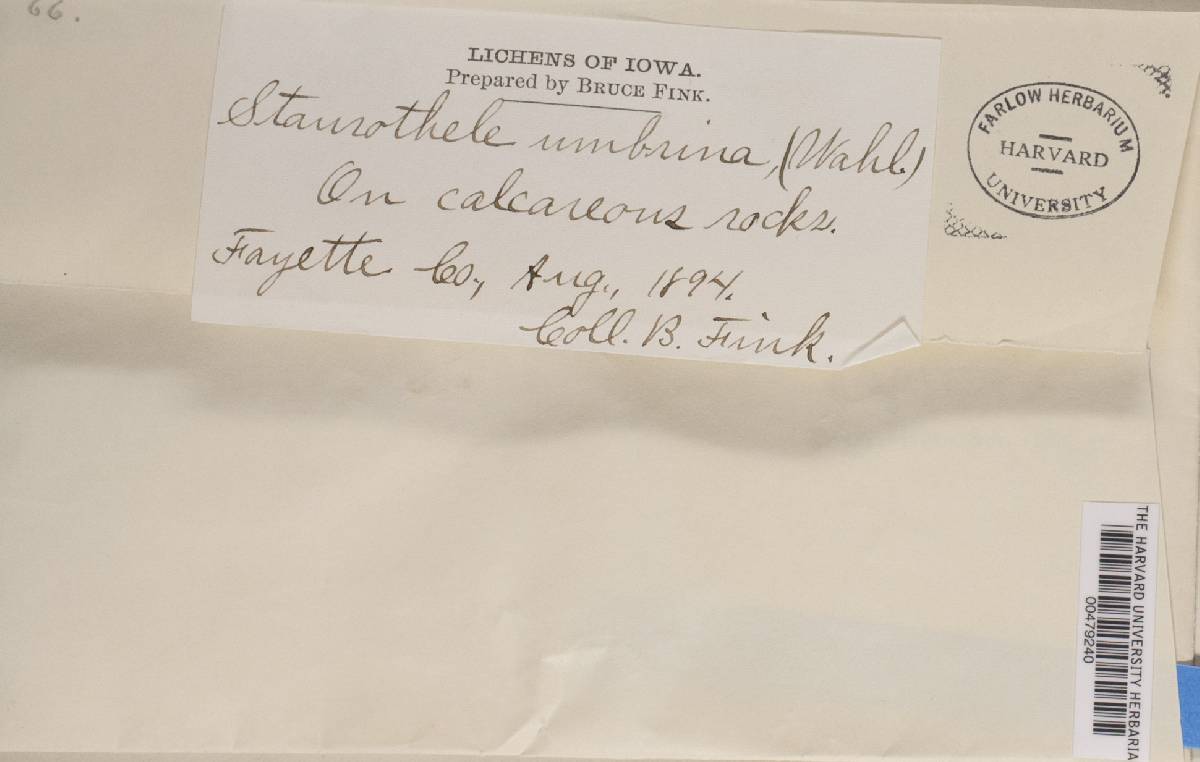 66.
LICHENS OF IOWA.
Prepared by BRUCE FINK.
Staurothele umbrina, (Wahl.)
On calcareous rocks.
Fayette Co., Aug., 1894.
Coll. B. Fink.
FARLOW HERBARIUM
HARVARD
UNIVERSITY
THE HARVARD UNIVERSITY HERBARIA
00479240